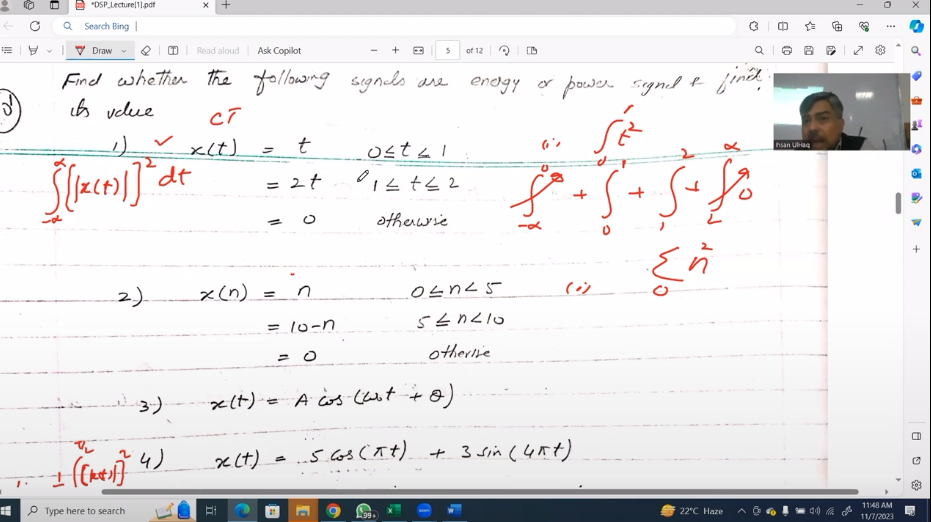 *DSP_Lecture[1].pdf
Search Bing
Draw
Read aloud
Ask Copilot
5
of 12
Find whether the following signals are energy or power signal & find
its value
CT
1) x(t) = t 0≤t≤1
(i) ∫₀¹ t²
∫₋∞^∞ [|x(t)|]² dt
= 2t 1≤t≤2
∫₋∞⁰ + ∫₀¹ + ∫₁² + ∫₂^∞ 0
= 0 otherwise
∑₀ n²
2) x(n) = n 0≤n<5
= 10-n 5≤n<10
= 0 otherise
3) x(t) = A cos(ωot + θ)
4) x(t) = 5 cos(πt) + 3 sin(4πt)
hsan UlHaq
Type here to search
99+
22°C Haze
11:48 AM
11/7/2023